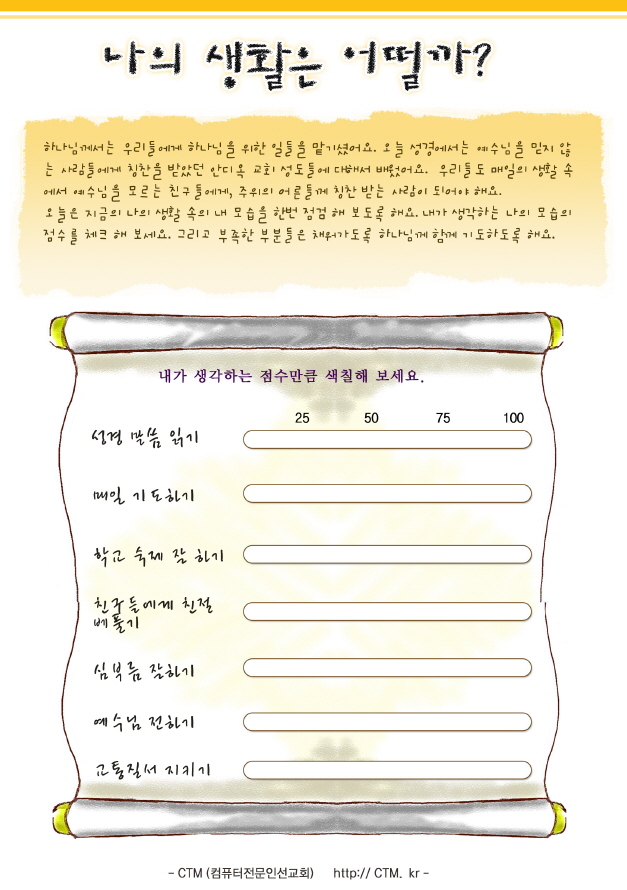 나의 생활은 어떨까?
하나님께서는 우리들에게 하나님을 위한 일들을 맡기셨어요. 오늘 성경에서는 예수님을 믿지 않
는 사람들에게 칭찬을 받았던 안디옥 교회 성도들에 대해서 배웠어요. 우리들도 매일의 생활 속
에서 예수님을 모르는 친구들에게, 주위의 어른들께 칭찬 받는 사람이 되어야 해요.
오늘은 지금의 나의 생활 속의 내 모습을 한번 점검 해 보도록 해요. 내가 생각하는 나의 모습의
점수를 체크 해 보세요. 그리고 부족한 부분들은 채워가도록 하나님께 함께 기도하도록 해요.
내가 생각하는 점수만큼 색칠해 보세요.
25 50 75 100
성경 말씀 읽기
매일 기도하기
학교 숙제 잘 하기
친구들에게 친절
베풀기
심부름 잘하기
예수님 전하기
교통질서 지키기
- CTM (컴퓨터전문인선교회) http:// CTM. kr -